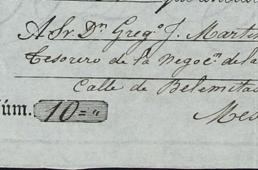 A Sr. Dn. Greg.º J. Martin
Tesorero de la Negoc.n de la
Calle de Belemitas
Núm. 10="